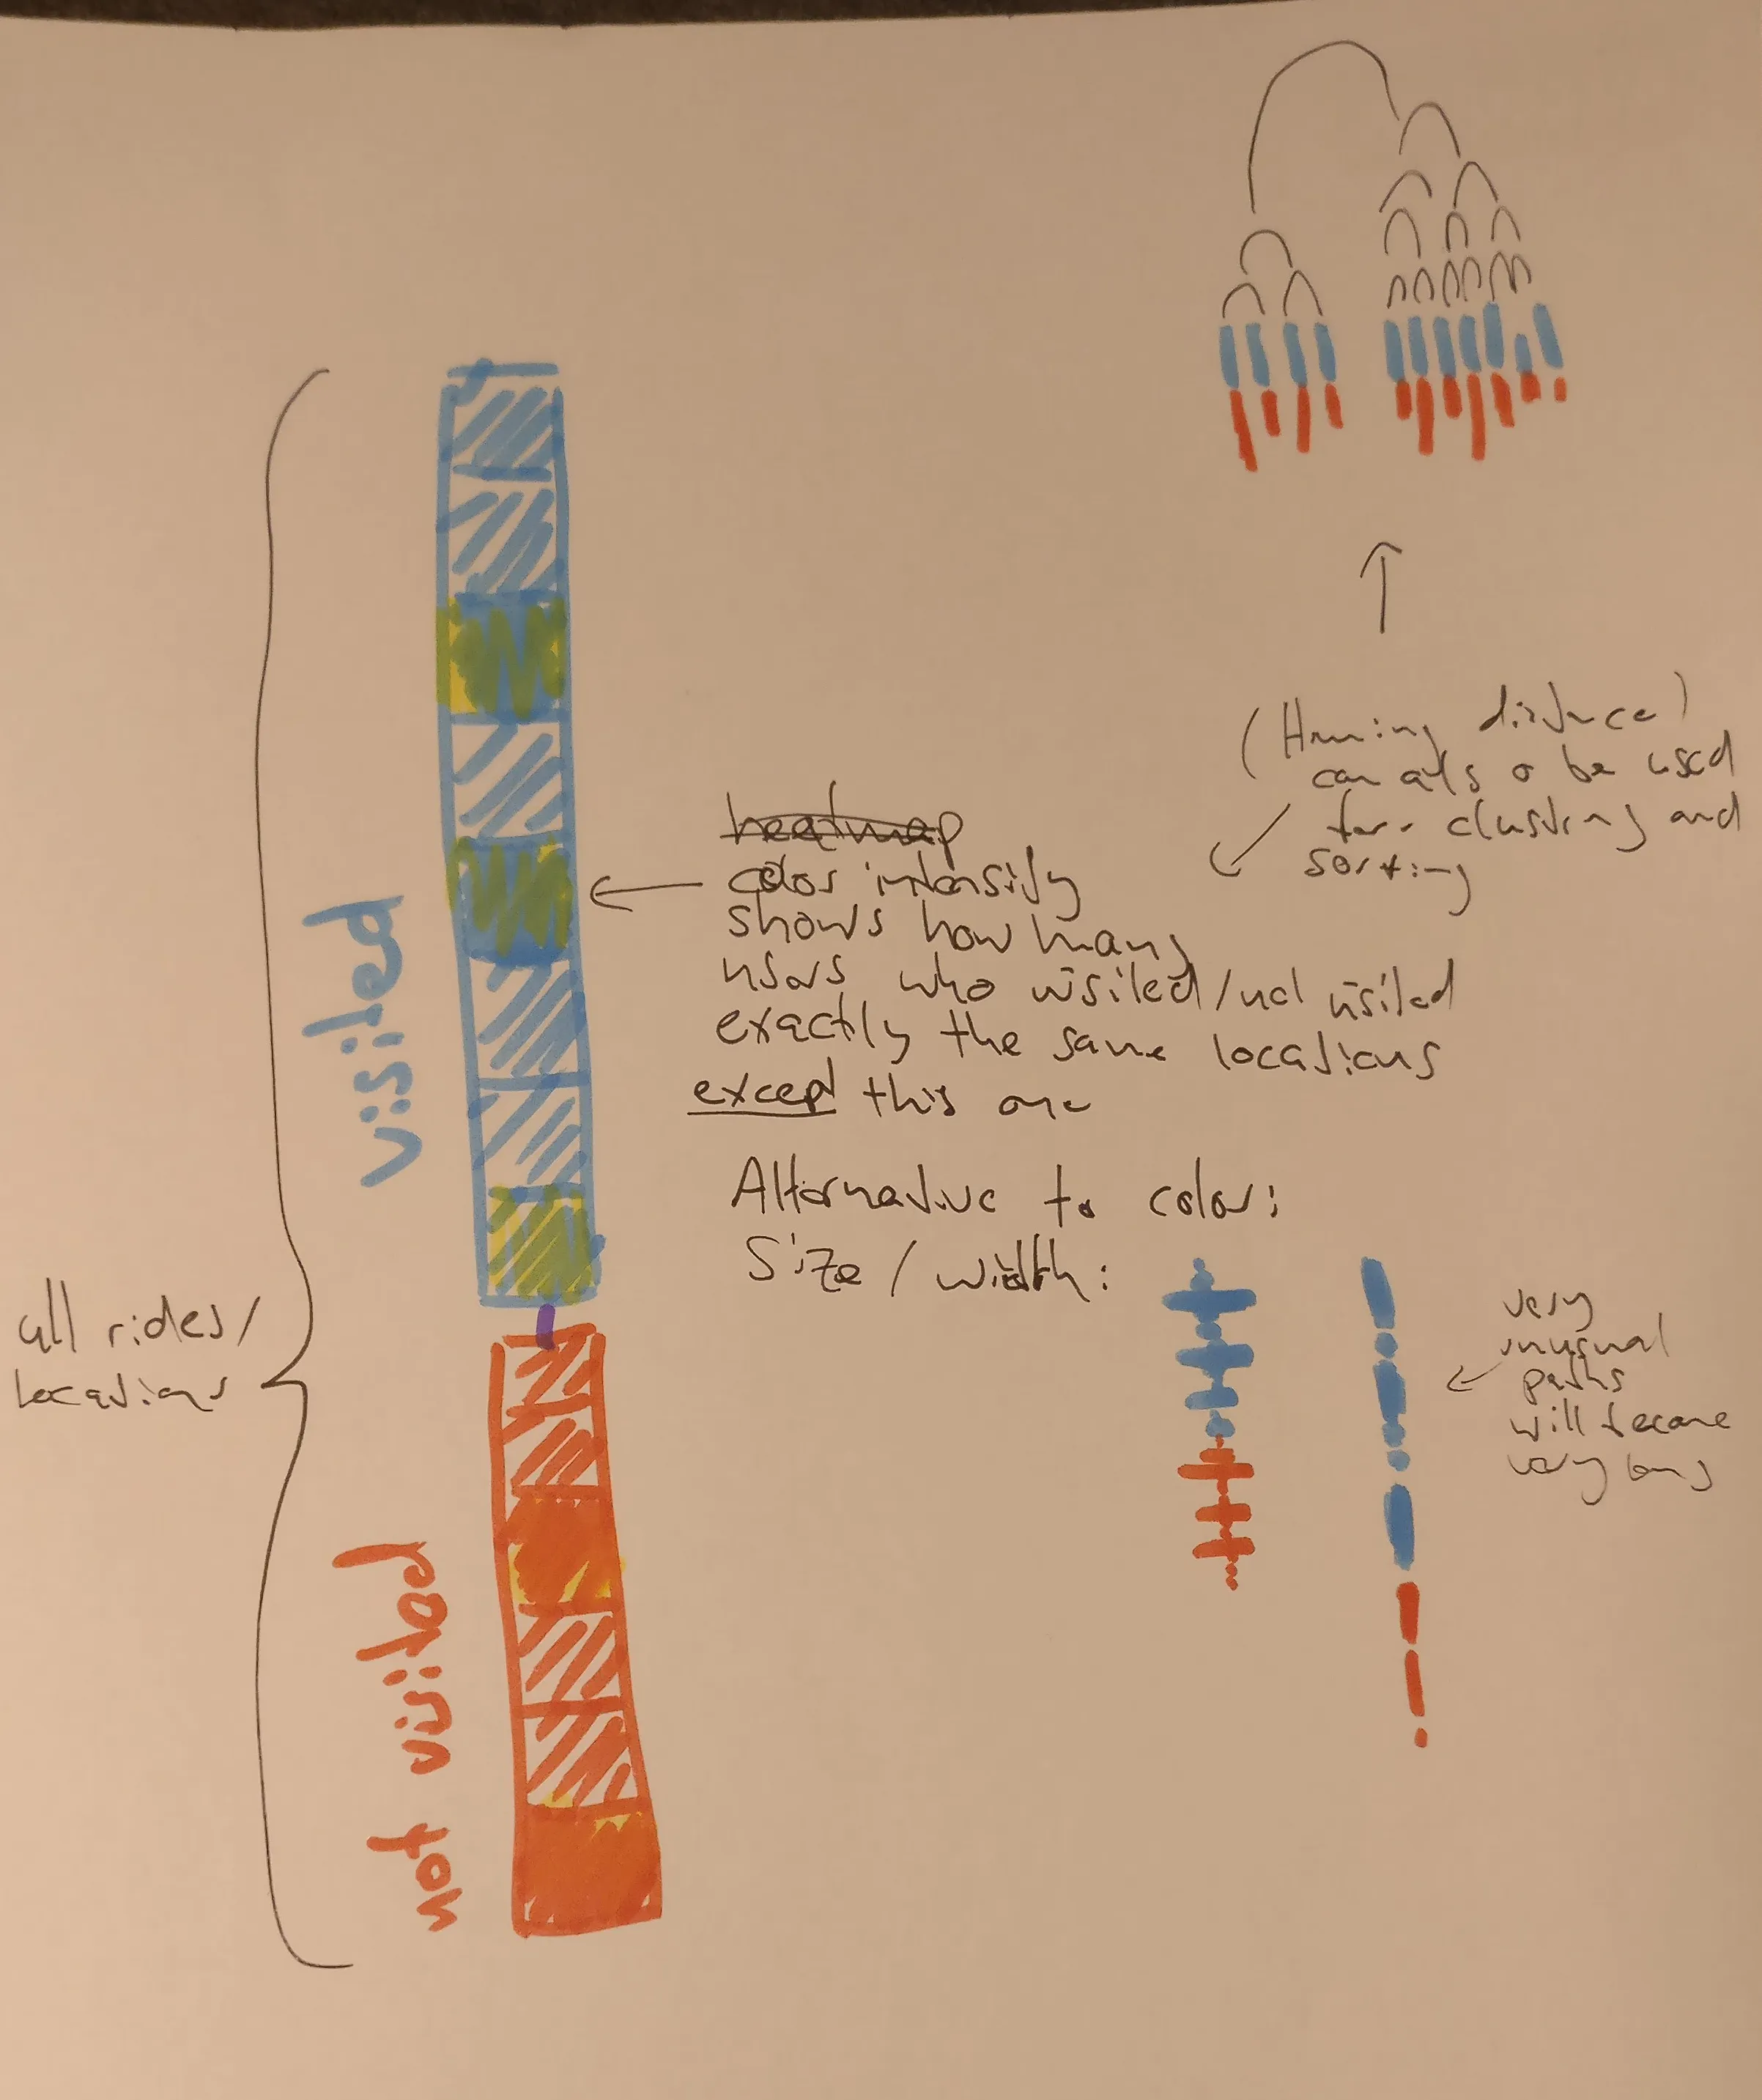 (Hmming distance)
can also be used
for clustring and
sorting
heatmap
color intensity
shows how many
users who visited/not visited
exactly the same locations
except this one
visited
Alternative to color:
Size / width:
all rides/
locations
very
unusual
paths
will become
very long
not visited